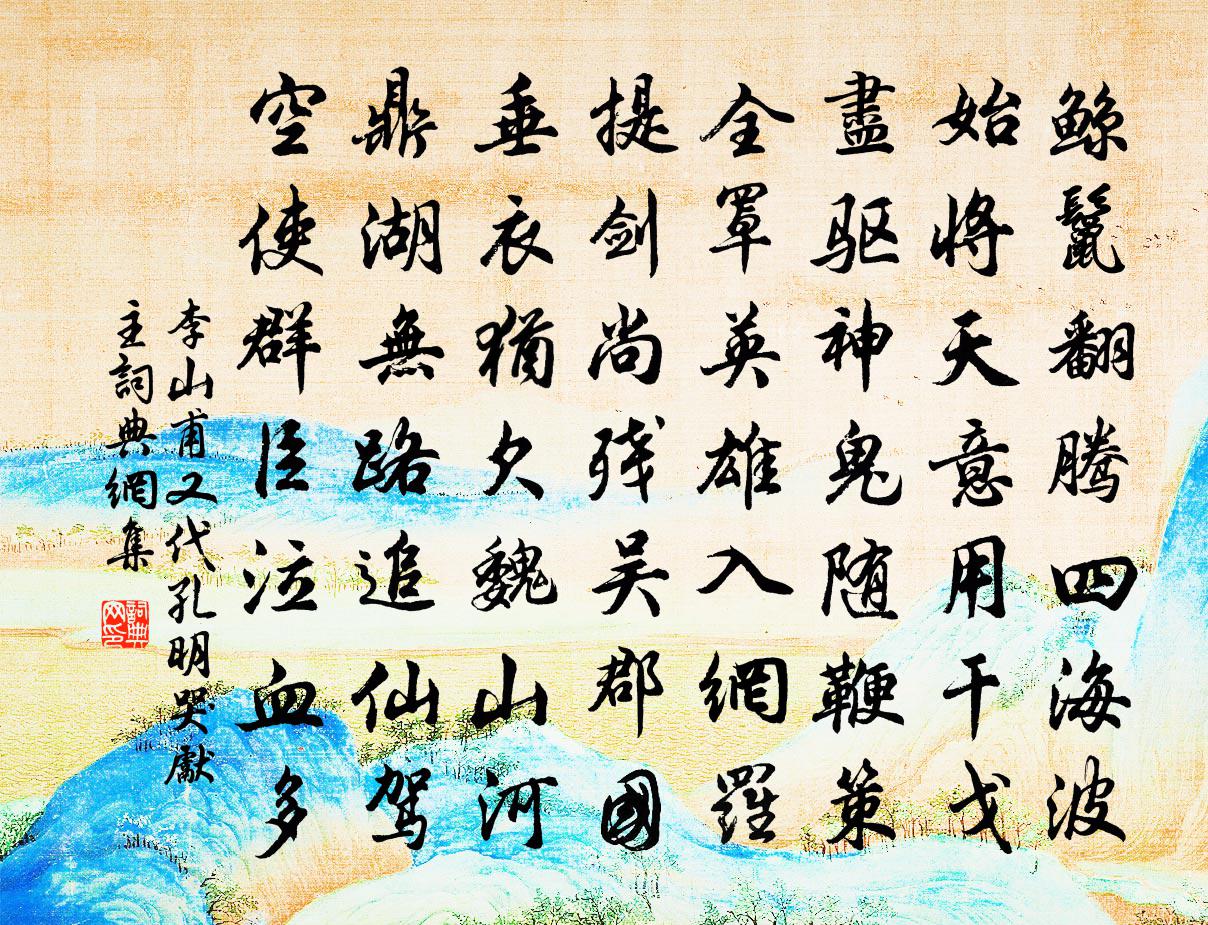 鯨鬣翻腾四海波
始將天意用干戈
盡驱神鬼随鞭策
全罩英雄入網羅
提劍尚残吴郡國
垂衣猶欠魏山河
鼎湖無路追仙驾
空使群臣泣血多
李山甫又代孔明哭獻
主詞典網集
詞典网印